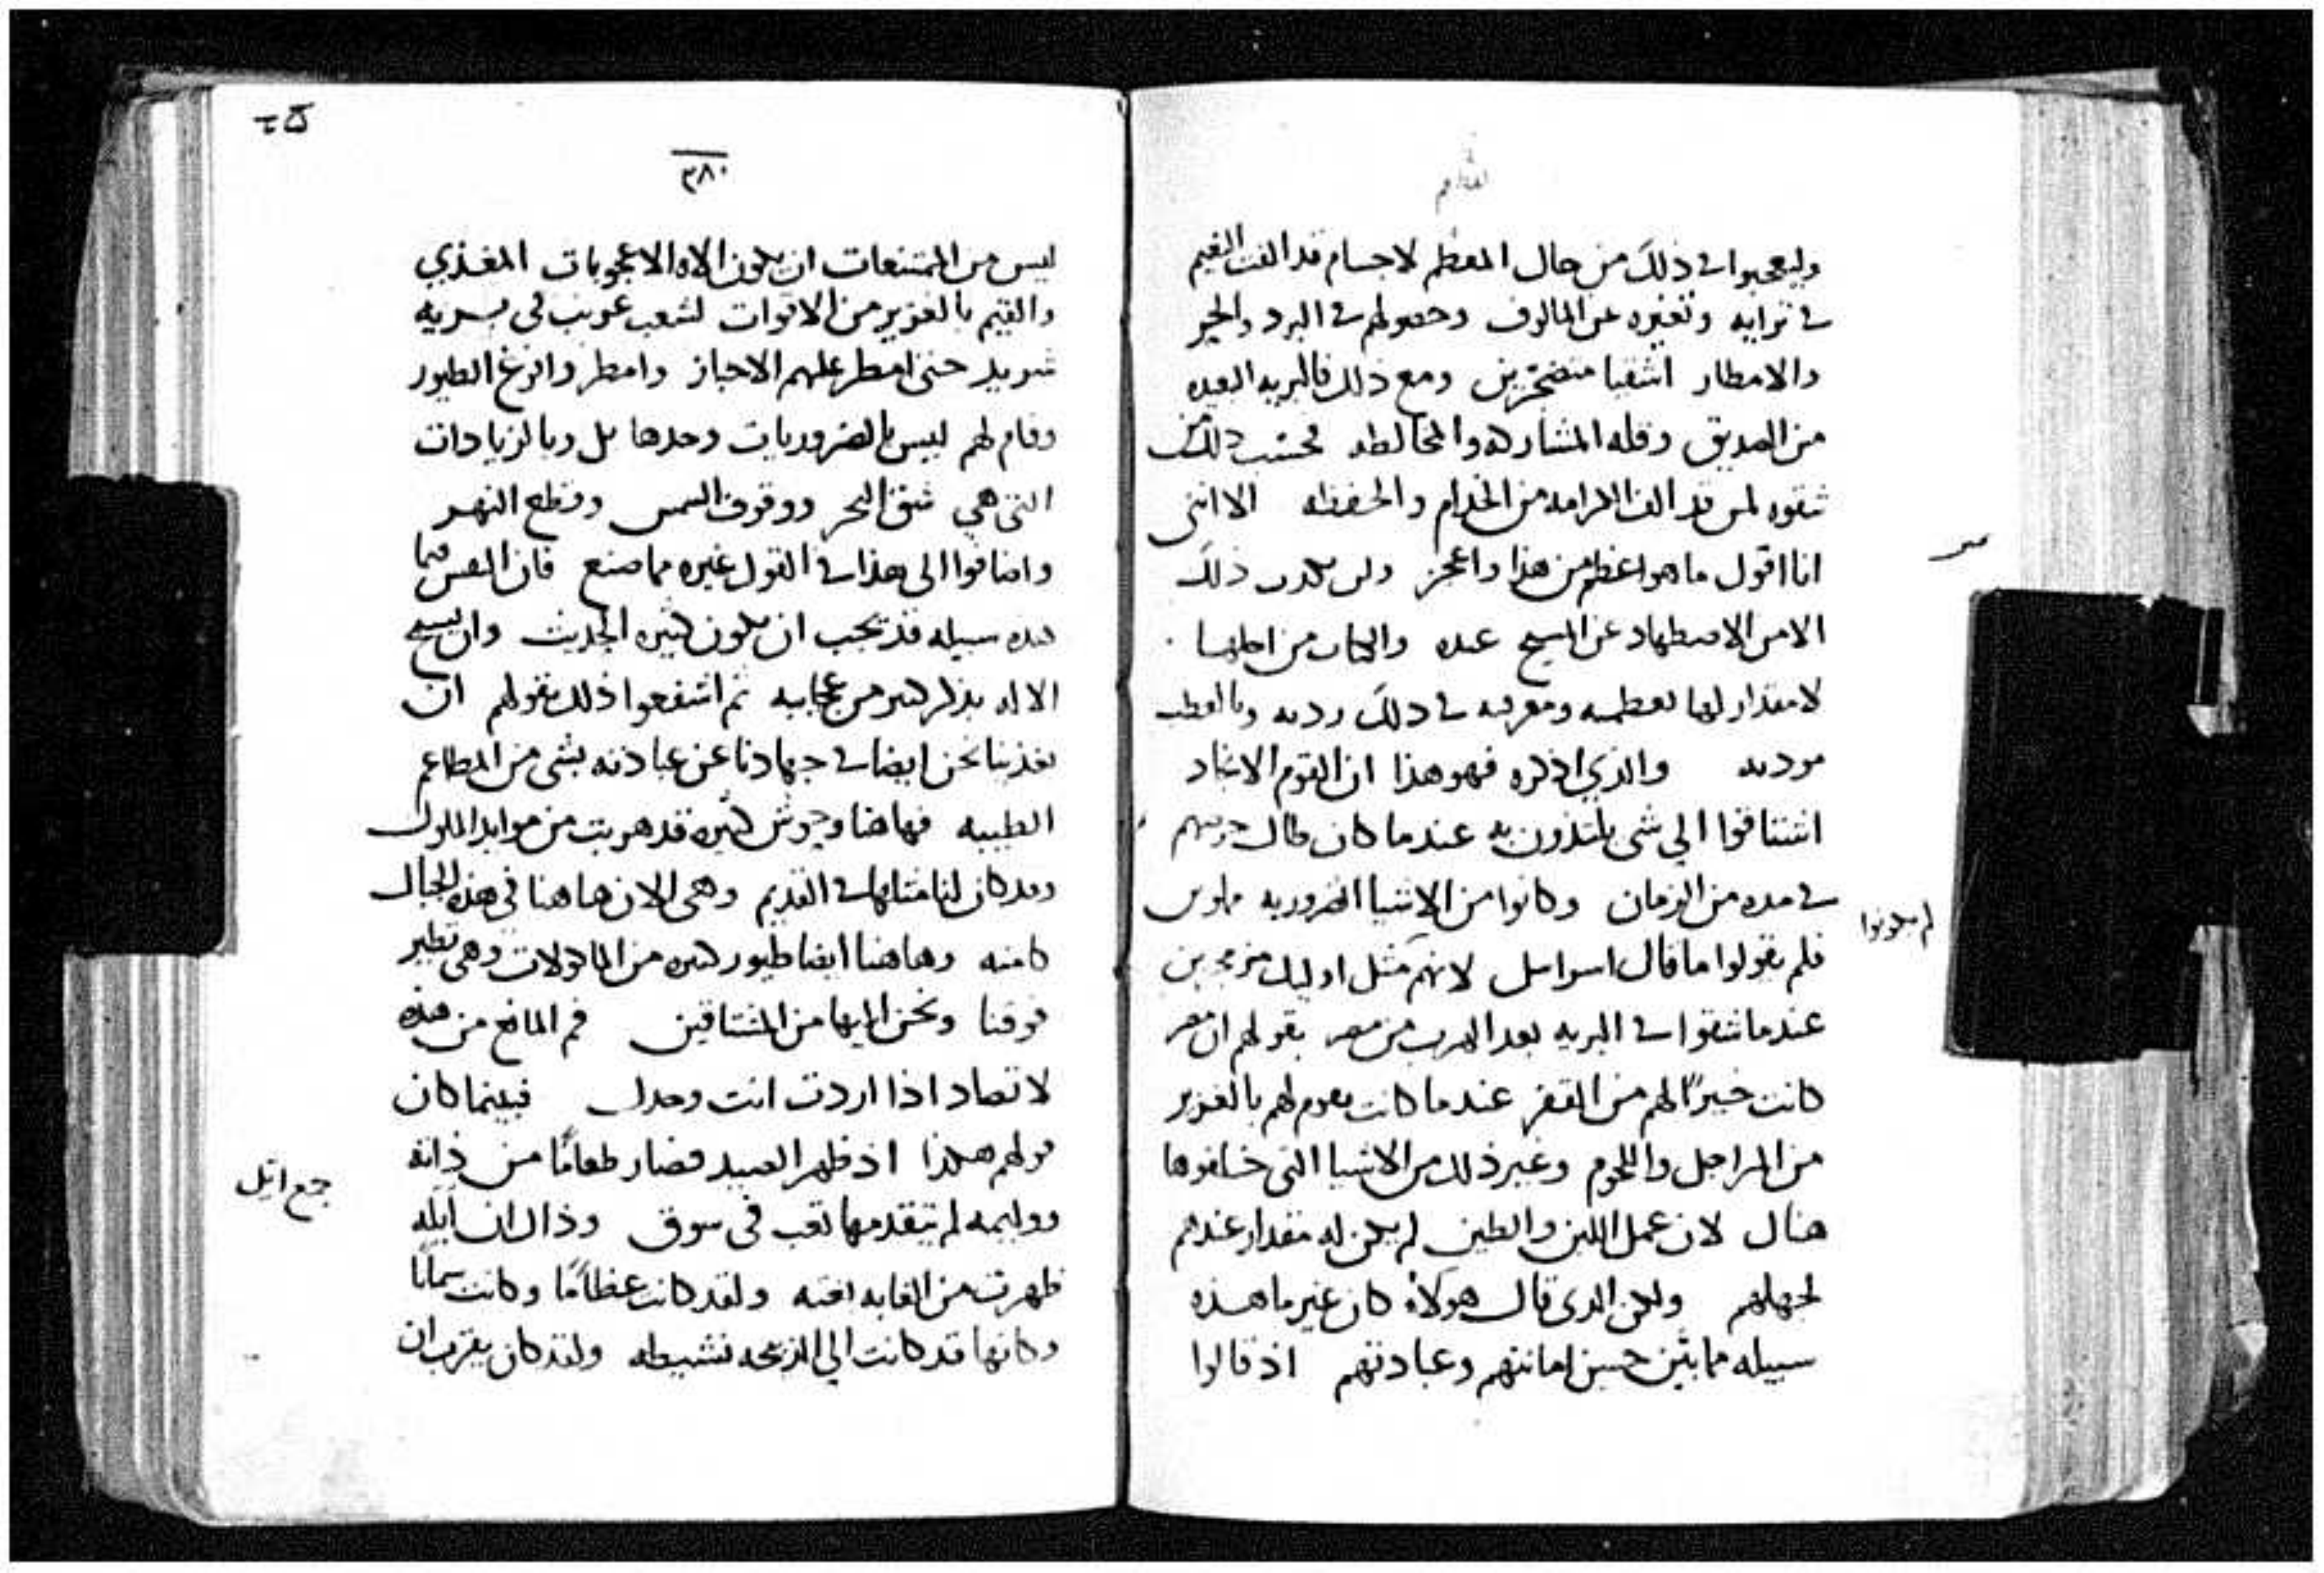 وليعجبوا في ذلك من حال المعظم لاجسام قد الفت النعيم
في ترابيه وتغيره عن المالوف وحصولهم في البرد والحر
والامطار اشقيا متضجرين ومع ذلك فالبريه البعيده
من الصديق وقله المشاركه والمخالطه فحسب ذلك من
شقوه لمن قد الف الكرامه من الخدام والحفظه الا انني
انا اقول ما هو اعظم من هذا واعجز ولن يكدب ذلك
الا من الاضطهاد عن المسيح عنده والهارب من اجلها
لا مقدار لها بعظمه ومعرفه في ذلك رديه وبالعطب
موديه والذي اذكره فهو هذا ان القوم الانجاد
اشتاقوا الي شي يلتذون به عندما كان طال حربهم
في مده من الزمان وكانوا من الاشيا الضروريه
لم يكونوا
فلم يقولوا ما قال اسراييل لانهم مثل اوليك متذمرين
عندما شقوا في البريه بعد الهرب من مصر بقولهم ان مصر
كانت خيرًا لهم من القفر عندما كانت تقوم لهم بالغزير
من المراجل واللحوم وغير ذلك من الاشيا التي خلفوها
هناك لان عمل اللبن والطين لم يكن له مقدار عندهم
لجهلهم ولكن الذي قال هولاء كان غير ما هذه
سبيله مما يبين حسن امانتهم وعبادتهم اذ قالوا
٣٨٠
ليس من الممتنعات ان يكون الاه الاعجوبات المغذي
والقيم بالغزير من الاقوات لشعب غريب في بريه
شريد حتى امطر عليهم الاخباز وامطر وافرغ الطيور
وقام لهم ليس بالضروريات وحدها بل وبالزيادات
التي هي شق البحر ووقوف الشمس وقطع النهر
واضافوا الى هذا في القول غيره مما صنع فان النفس فيما
هذه سبيله قد تحب ان يكون كثيره الحديث وان تسبح
الاله بذكر كثير من عجايبه ثم اشفعوا ذلك بقولهم ان
يغذينا نحن ايضا في جهادنا عن عبادته بشي من المطاعم
الطيبه فها هنا وحوش كثيره قد هربت من موايد الملوك
وقد كان لنا مثلها في القديم وهي الان ها هنا في هذه الجبال
كامنه وها هنا ايضا طيور كثيره من الماكولات وهي تطير
فوقنا ونحن اليها من المشتاقين فم المانع من هذه
لا تصاد اذا اردت انت وحدك فبينما كان
قولهم هكذا اذ ظهر الصيد فصار طعامًا من ذاته
ووليمه لم يتقدمها تعب في سوق وذاك ان ايله
جمع ايّل
ظهرت من الغابه بغته ولقد كانت عظامًا وكانت سمانًا
وكانها قد كانت الي الذبيحه نشيطه ولقد كان يقرب ان